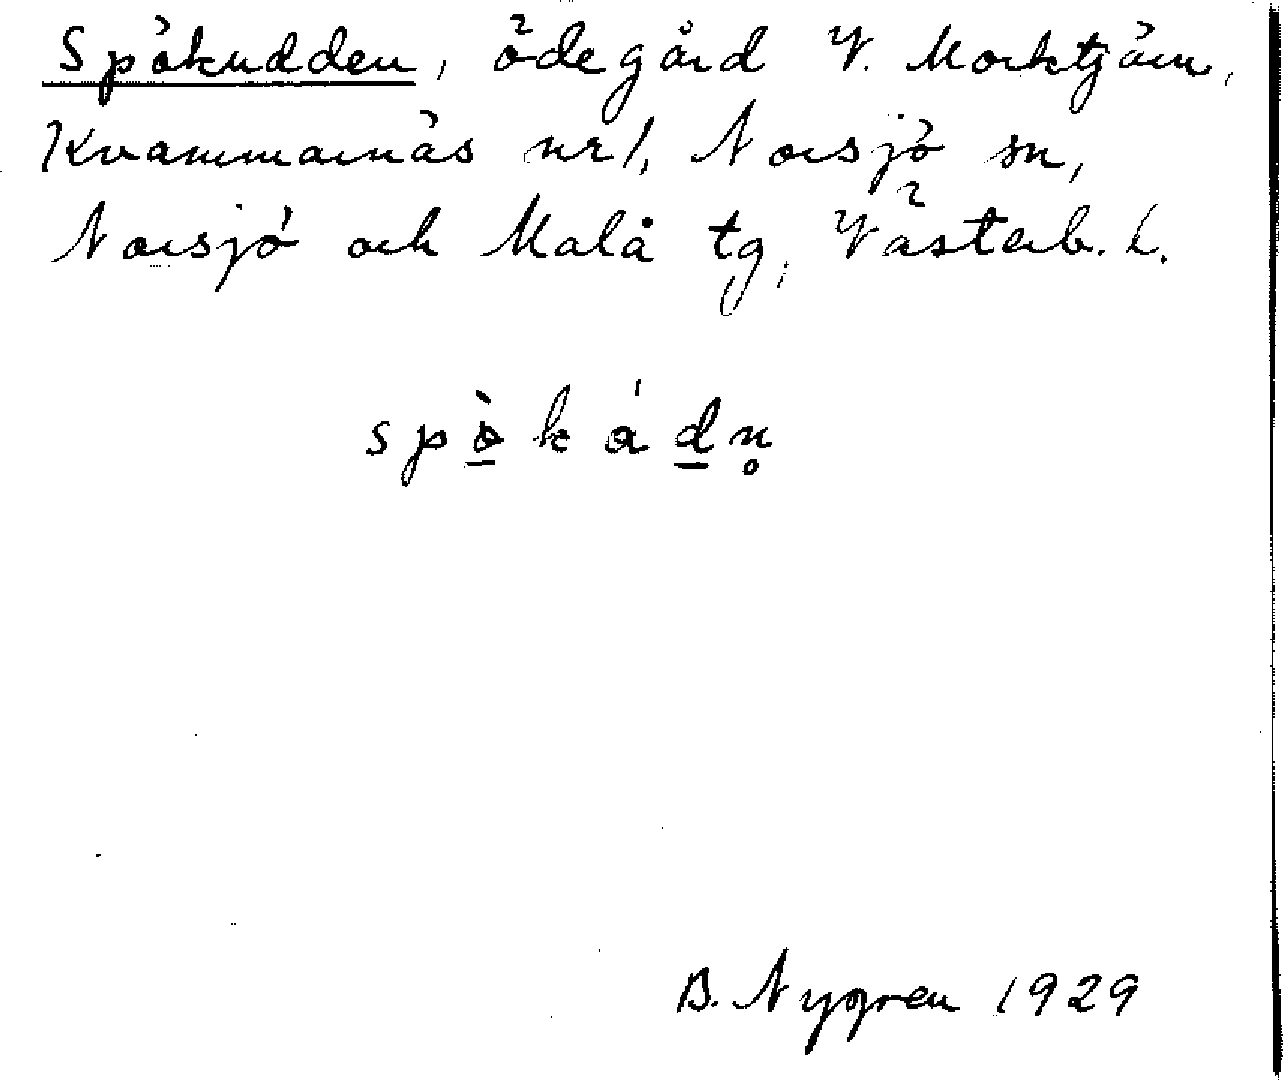 Spökudden, ödegård V. Morktjärn,
Kvammarnäs nr 1, Norsjö sn,
Norsjö och Malå tg, Västerb. l.
spò̱kádn̥
B. Nygren 1929